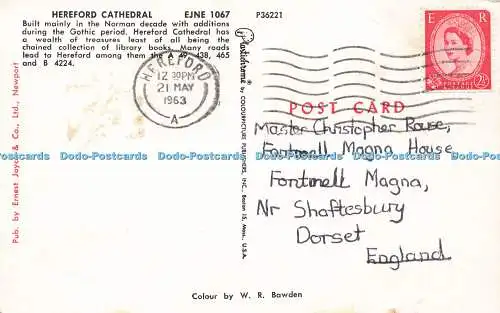 HEREFORD CATHEDRAL EJNE 1067
Built mainly in the Norman decade with additions
during the Gothic period. Hereford Cathedral has
a wealth of treasures least of all being the
chained collection of library books. Many roads
lead to Hereford among them the A 49, 438, 465
and B 4224.
P36221
Pub. by Ernest Joyce & Co., Ltd., Newport
HEREFORD
12 30PM
21 MAY
1963
A
Plastichrome ® by COLOURPICTURE PUBLISHERS, INC., Boston 15, Mass., U.S.A.
E R
POSTAGE
2½
POST CARD
Master Christopher Rouse,
Fontmell Magna House
Fontmell Magna,
Nr Shaftesbury
Dorset
England
Colour by W. R. Bawden
Dodo-Postcards Dodo-Postcards Dodo-Postcards Dodo-Postcards Dodo-Postcards